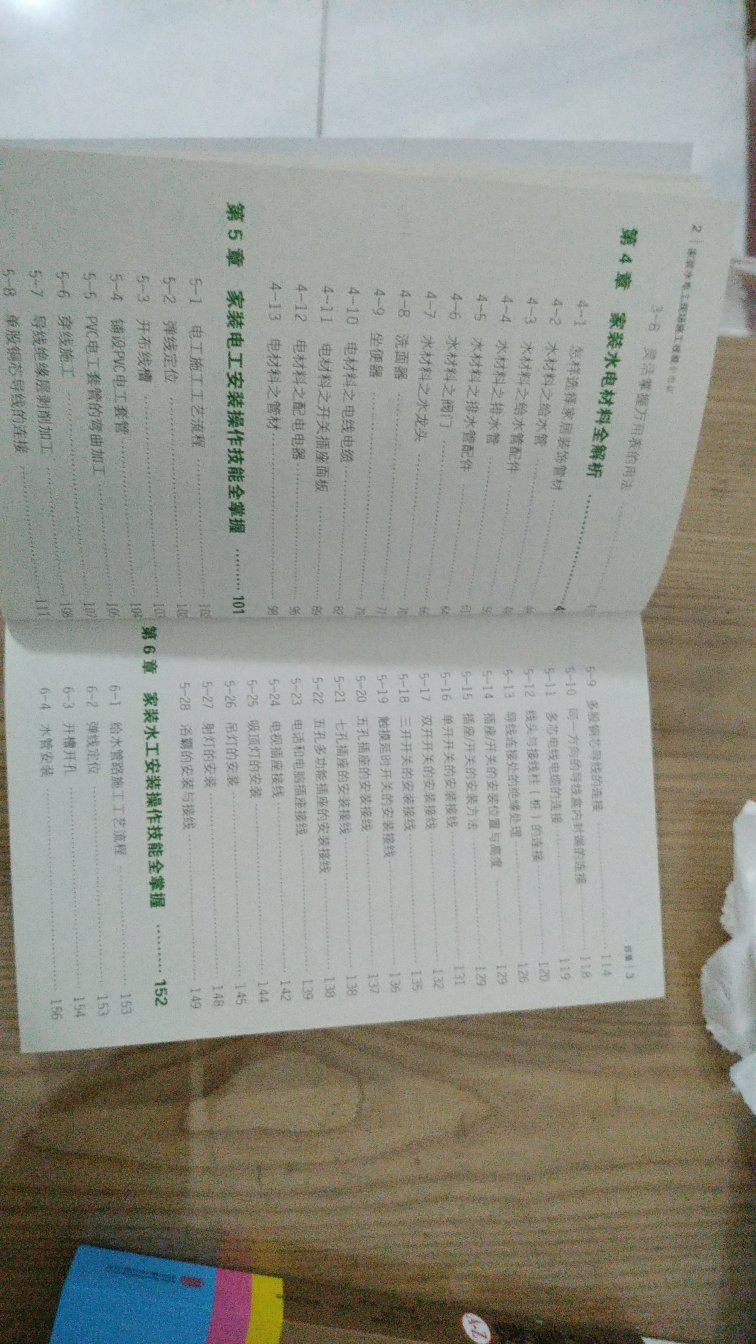 2 家装水电工现场施工技能全书
3-8 灵活掌握万用表的用法
第4章 家装水电材料全解析
4-1 怎样选择家居装饰管材
4-2 水材料之给水管
4-3 水材料之给水管配件
4-4 水材料之排水管
4-5 水材料之排水管配件
4-6 水材料之阀门 64
4-7 水材料之水龙头 66
4-8 洗面器 70
4-9 坐便器 71
4-10 电材料之电线电缆
4-11 电材料之开关插座面板
4-12 电材料之配电电器
4-13 电材料之管材
第5章 家装电工安装操作技能全掌握 101
5-1 电工施工工艺流程
5-2 弹线定位
5-3 开布线槽
5-4 铺设PVC电工套管
5-5 PVC电工套管的弯曲加工 107
5-6 穿线施工 108
5-7 导线绝缘层剥削加工 111
5-8 单股铜芯导线的连接
目录 3
5-9 多股铜芯导线的连接 114
5-10 同一方向的导线盒内封端的连接 118
5-11 多芯电线电缆的连接 119
5-12 线头与接线柱（桩）的连接 120
5-13 导线连接处的绝缘处理 126
5-14 插座/开关的安装位置与高度 129
5-15 插座/开关的安装方法 129
5-16 单开开关的安装接线 131
5-17 双开开关的安装接线 132
5-18 三开开关的安装接线 135
5-19 触摸延时开关的安装接线 136
5-20 五孔插座的安装接线 137
5-21 七孔插座的安装接线 138
5-22 五孔多功能插座的安装接线 138
5-23 电话和电脑插座接线 139
5-24 电视插座接线 142
5-25 吸顶灯的安装 144
5-26 吊灯的安装 145
5-27 射灯的安装 148
5-28 浴霸的安装与接线 149
第6章 家装水工安装操作技能全掌握 152
6-1 给水管路施工工艺流程 153
6-2 弹线定位 153
6-3 开槽开孔 154
6-4 水管安装 156